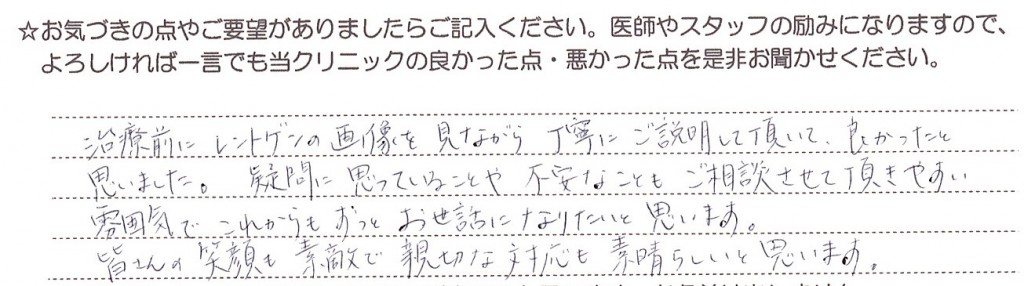 ☆お気づきの点やご要望がありましたらご記入ください。医師やスタッフの励みになりますので、
よろしければ一言でも当クリニックの良かった点・悪かった点を是非お聞かせください。
治療前にレントゲンの画像を見ながら丁寧にご説明して頂いて、良かったと
思いました。疑問に思っていることや不安なこともご相談させて頂きやすい
雰囲気でこれからもずっとお世話になりたいと思います。
皆さんの笑顔も素敵で親切な対応も素晴らしいと思います。